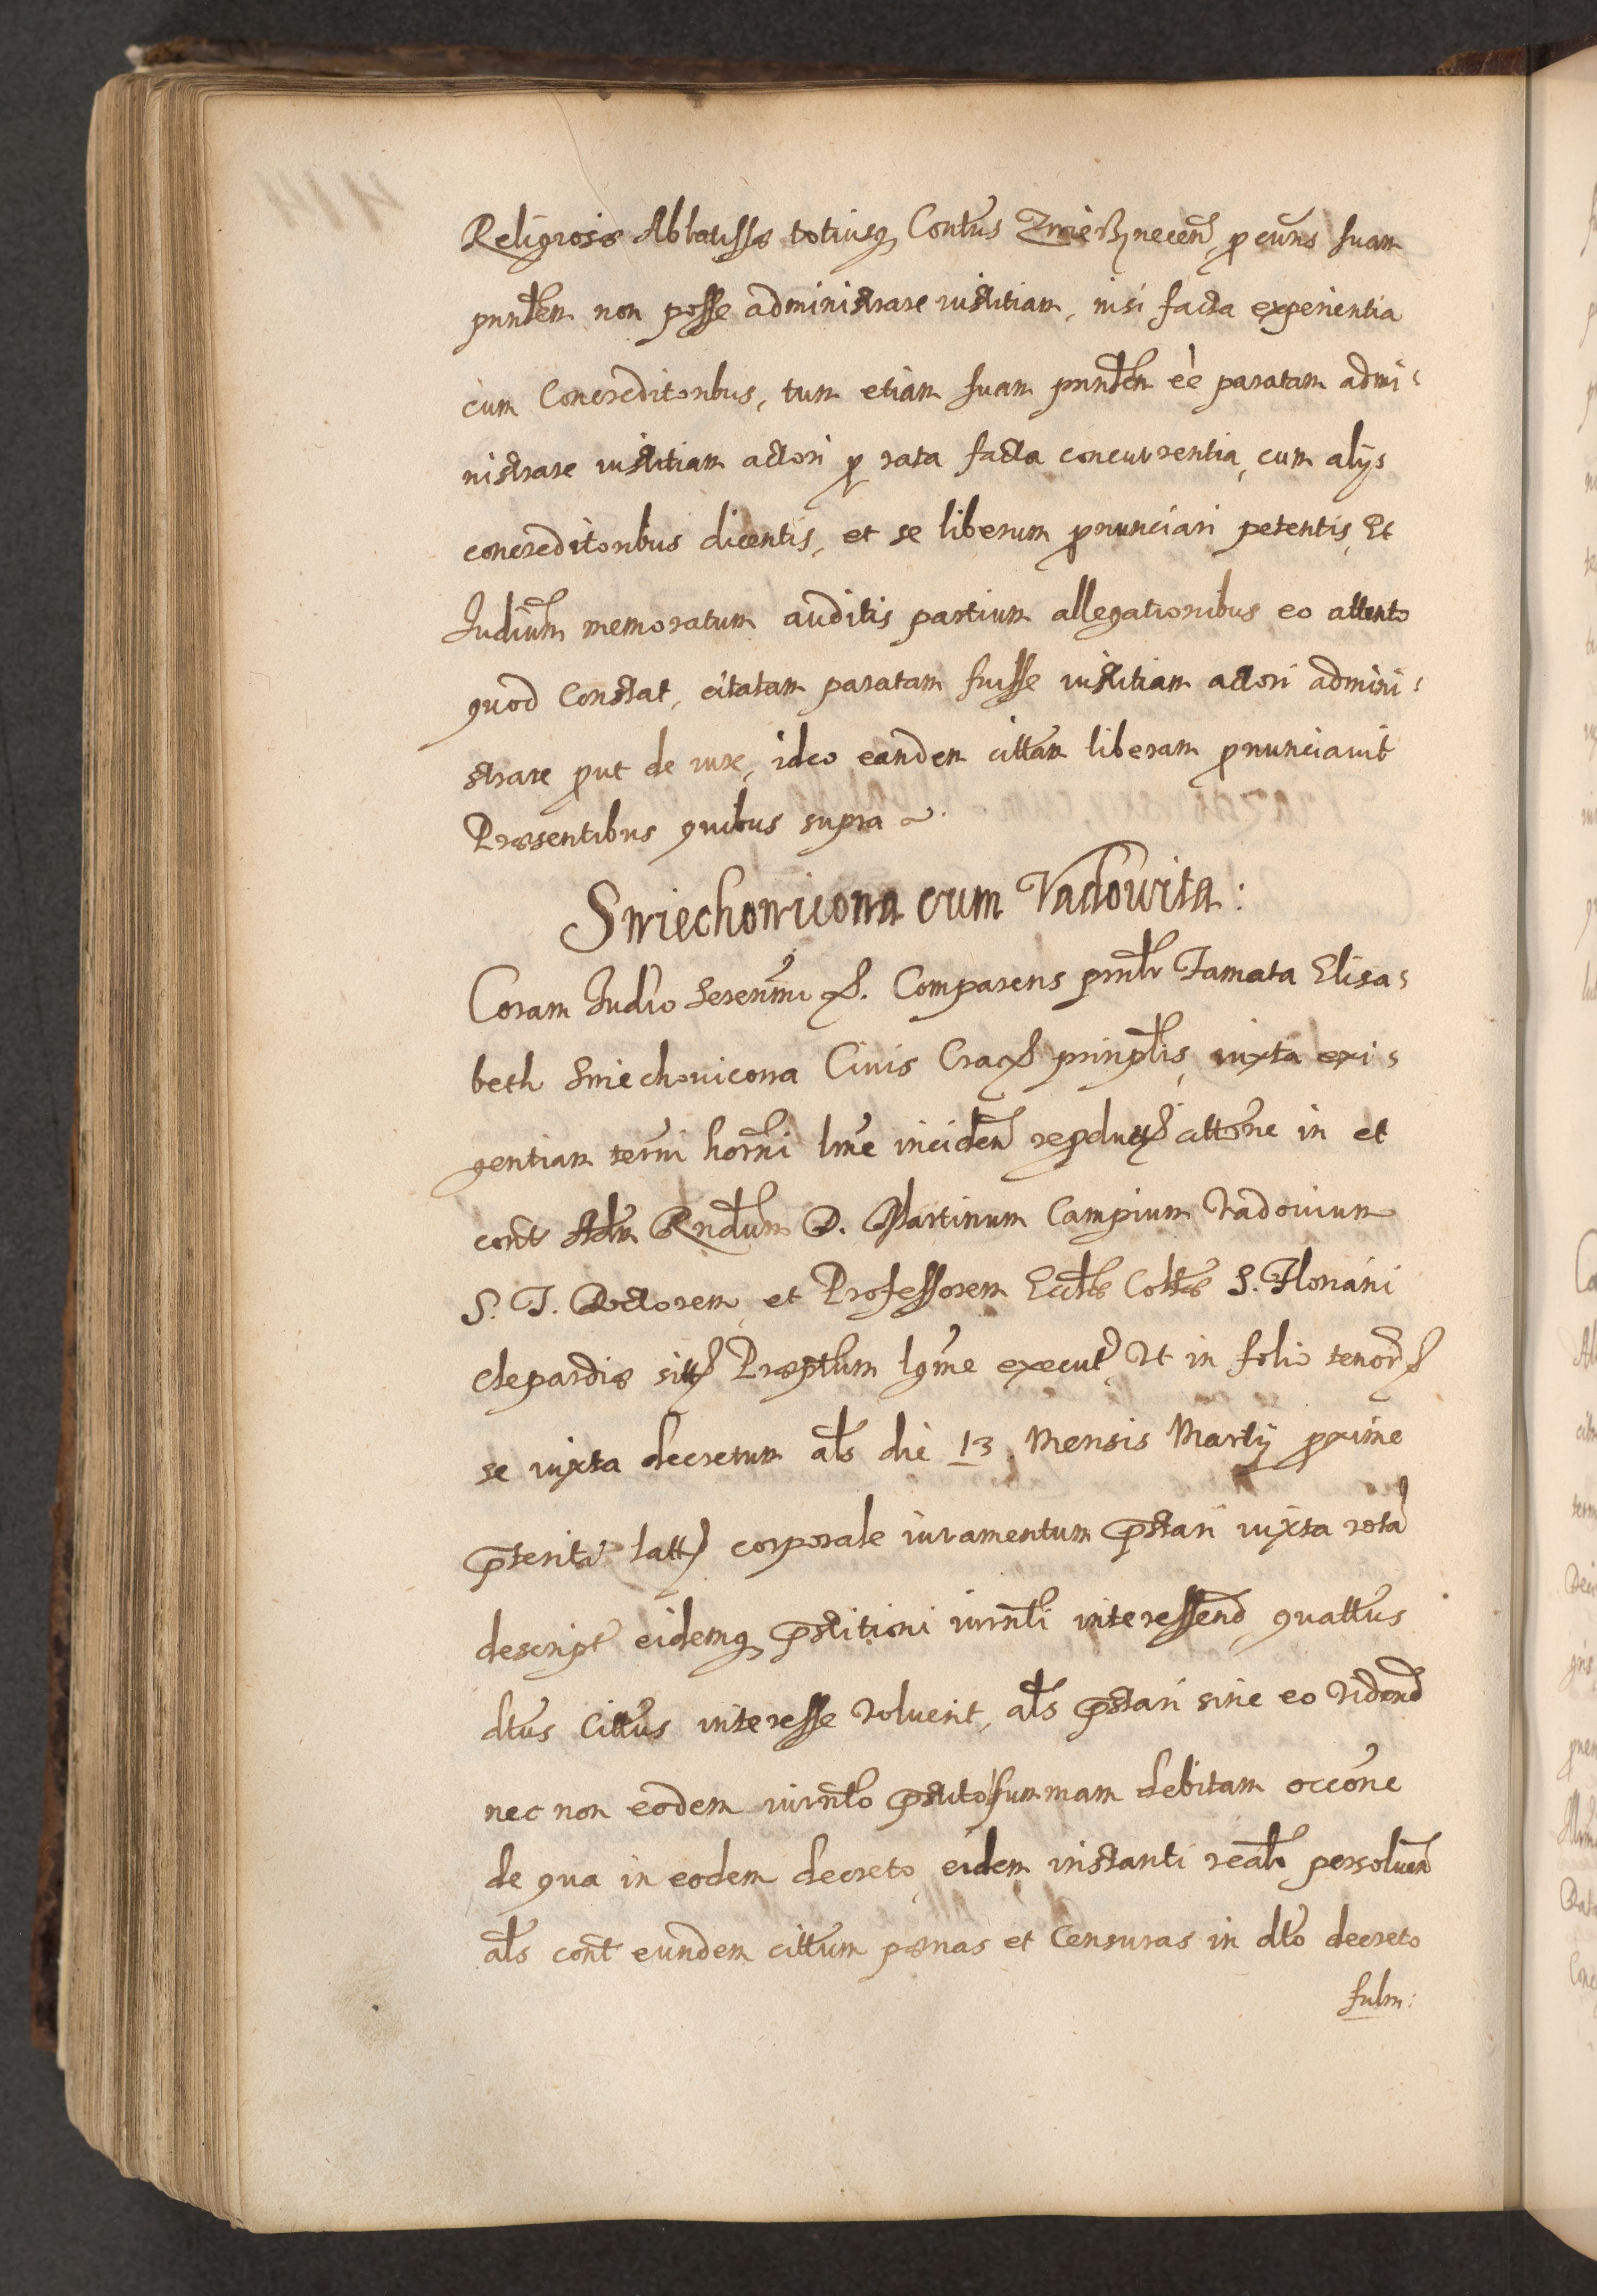 Religiosæ Abbatissæ totiusq Contus Zwierzynecen, p cuius suam
pnntem non posse administrare iustitiam, nisi facta experientia
cum Concreditoribus, tum etiam suam pnntem ee paratam admi-
nistrare iustitiam actori p rata facta concurrentia, cum alijs
concreditoribus dicentis, et se liberum pnunciari petentis, Et
Judium memoratum auditis partium allegationibus eo attento
quod Constat, citatam paratam fuisse iustitiam actori admini-
strare put de iure, ideo eandem cittam liberam pnunciavit
Præsentibus quibus supra
Swiechowicowa cum Vadovita:
Coram Judio Serenmi Comparens pnntr Famata Elisa-
beth Swiechovicowa Civis Crac prinplis, iuxta exi-
gentiam termi horni lme inciden repduct cittone in et
cont Adm Rndum D. Martinum Campium Vadovium
S. T. Doctorem et Professorem Ecctæ Collæ S. Floriani
Clepardiæ sitt Præptum lgme execut Ut in folio tenor
se iuxta decretum als die 13 Mensis Martij pxime
pterita latt corporale iuramentum pstari iuxta rota
descript eidemq pstitioni iurnti interessend quattus
dtus Cittus interesse voluerit, als pstari sine eo vidend
nec non eodem iurnto pstito summam debitam occone
de qua in eodem decreto eidem instanti realr persoluen
als cont eundem cittum pænas et Censuras in dto decreto
fulm: